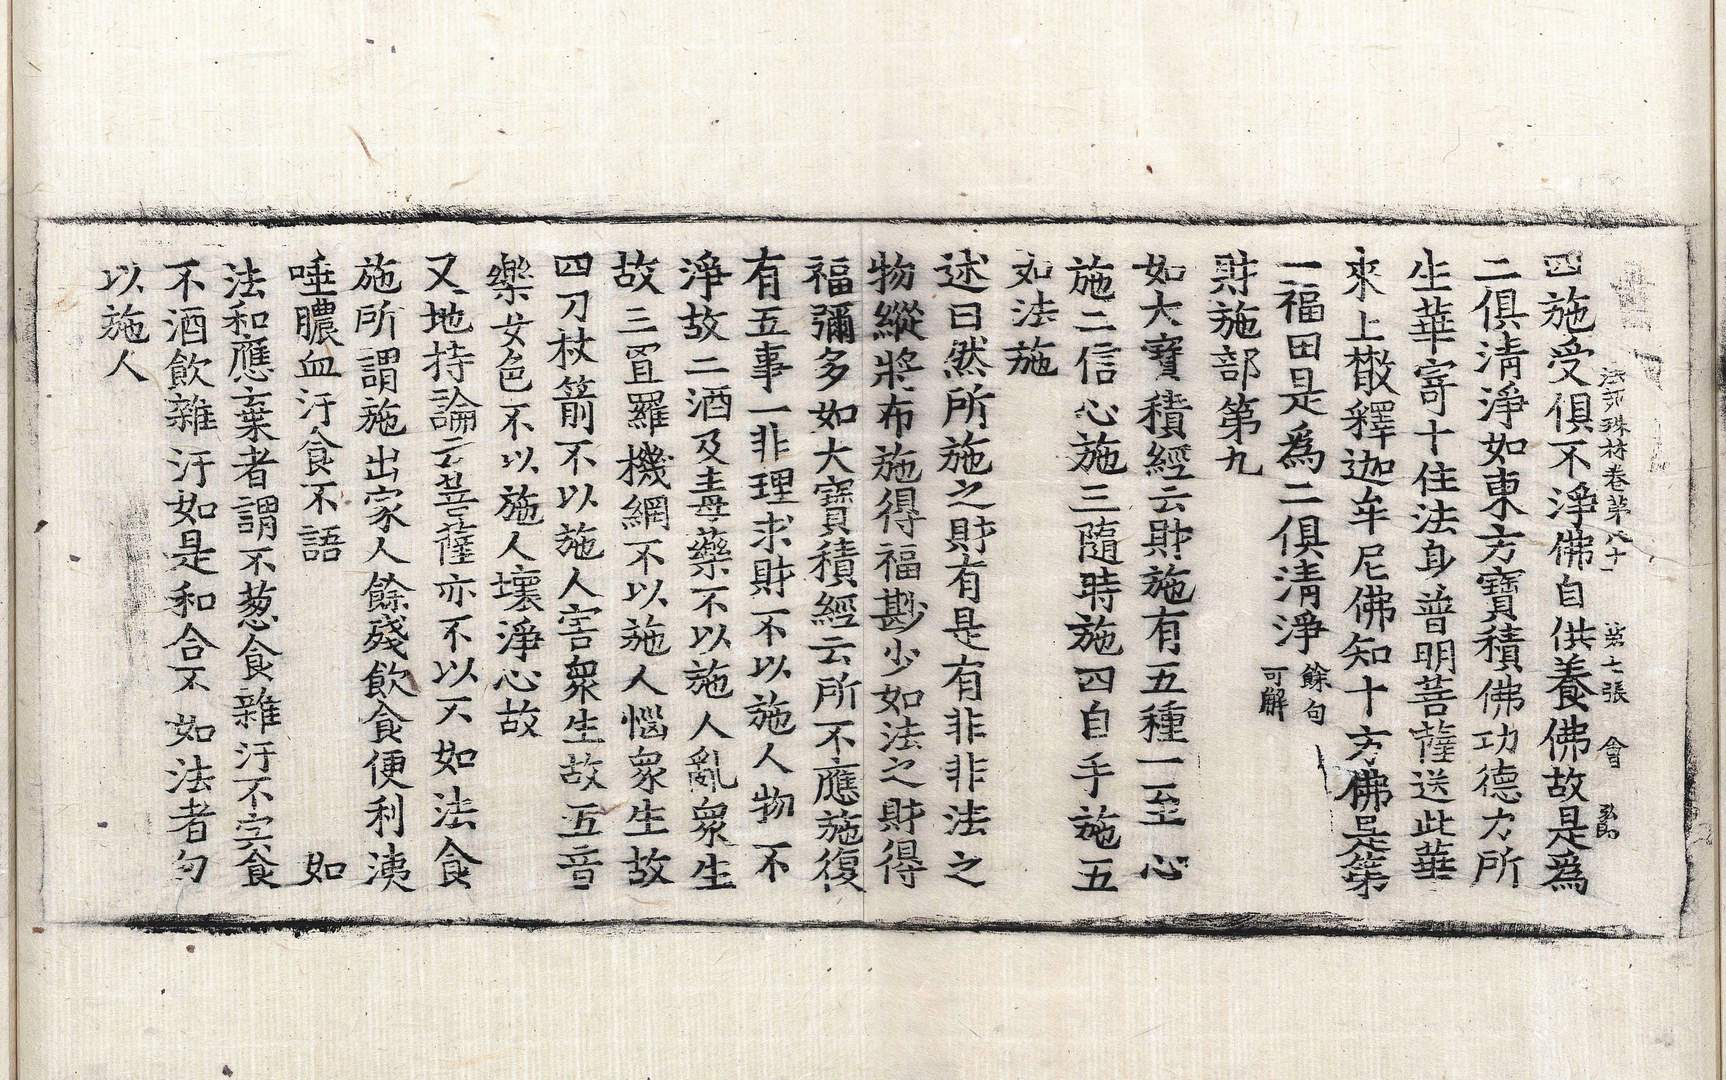 法苑珠林卷第八十一 第七張 會
四施受俱不淨佛自供養佛故是爲
二俱清淨如東方寶積佛功德力所
生華寄十住法身普明菩薩送此華
來上散釋迦牟尼佛知十方佛是第
一福田是爲二俱清淨餘句可解
財施部第九
如大寶積經云財施有五種一至心
施二信心施三隨時施四自手施五
如法施
述曰然所施之財有是有非非法之
物縱將布施得福尠少如法之財得
福彌多如大寶積經云所不應施復
有五事一非理求財不以施人物不
淨故二酒及毒藥不以施人亂衆生
故三罝羅機網不以施人惱衆生故
四刀杖箭不以施人害衆生故五音
樂女色不以施人壞淨心故
又地持論云菩薩亦不以不如法食
施所謂施出家人餘殘飲食便利洟
唾膿血汙食不語 如
法和應棄者謂不葱食雜汙不宍食
不酒飲雜汙如是和合不如法者勾
以施人